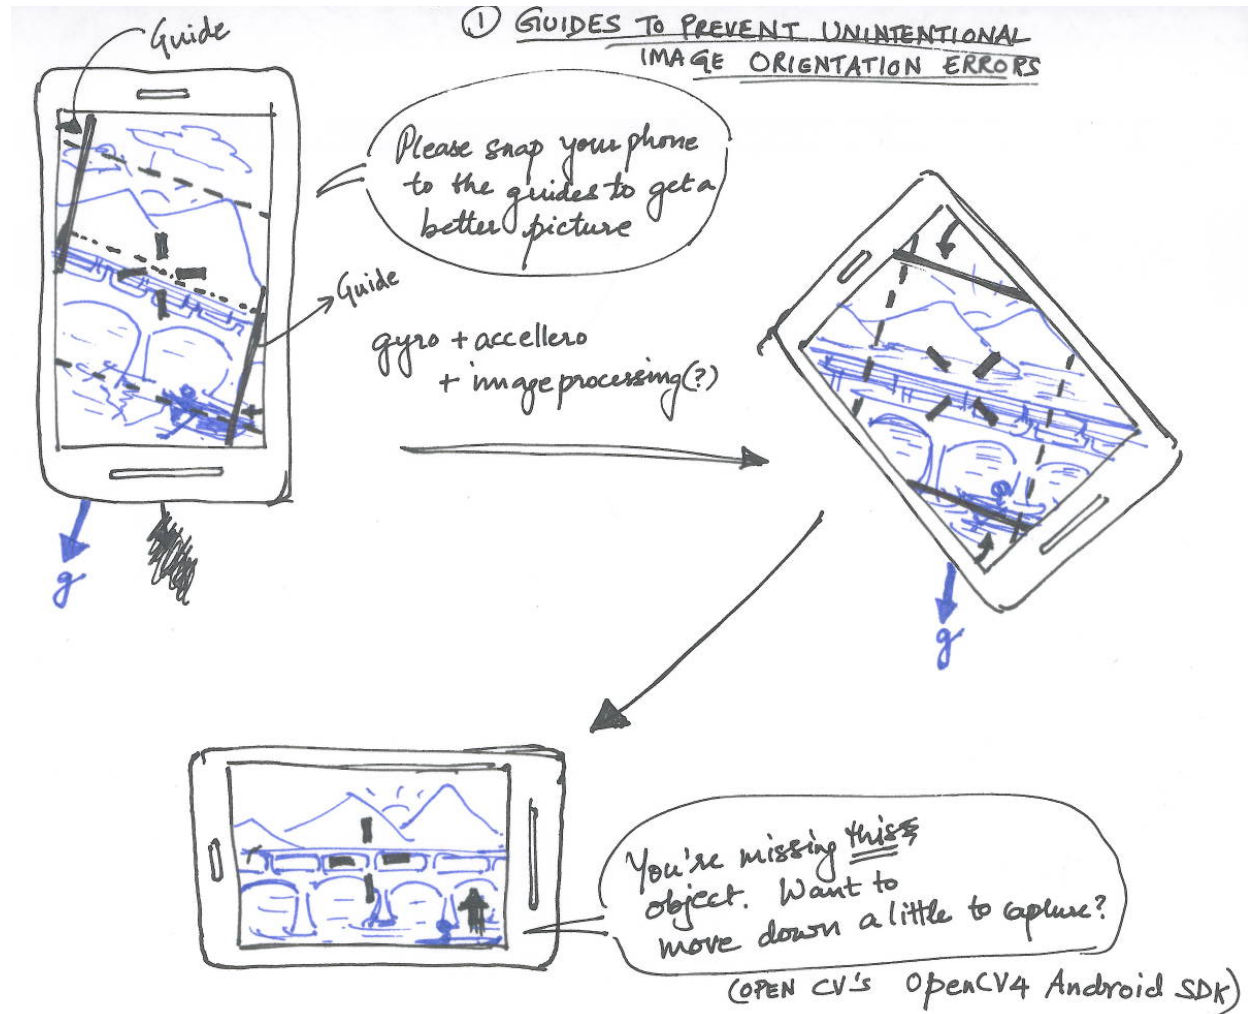 ① GUIDES TO PREVENT UNINTENTIONAL
IMAGE ORIENTATION ERRORS
Guide
Please snap your phone
to the guides to get a
better picture
Guide
gyro + accellero
+ image processing(?)
g
g
You're missing this
object. Want to
move down a little to capture?
(OPEN CV'S OpenCV4 Android SDK)